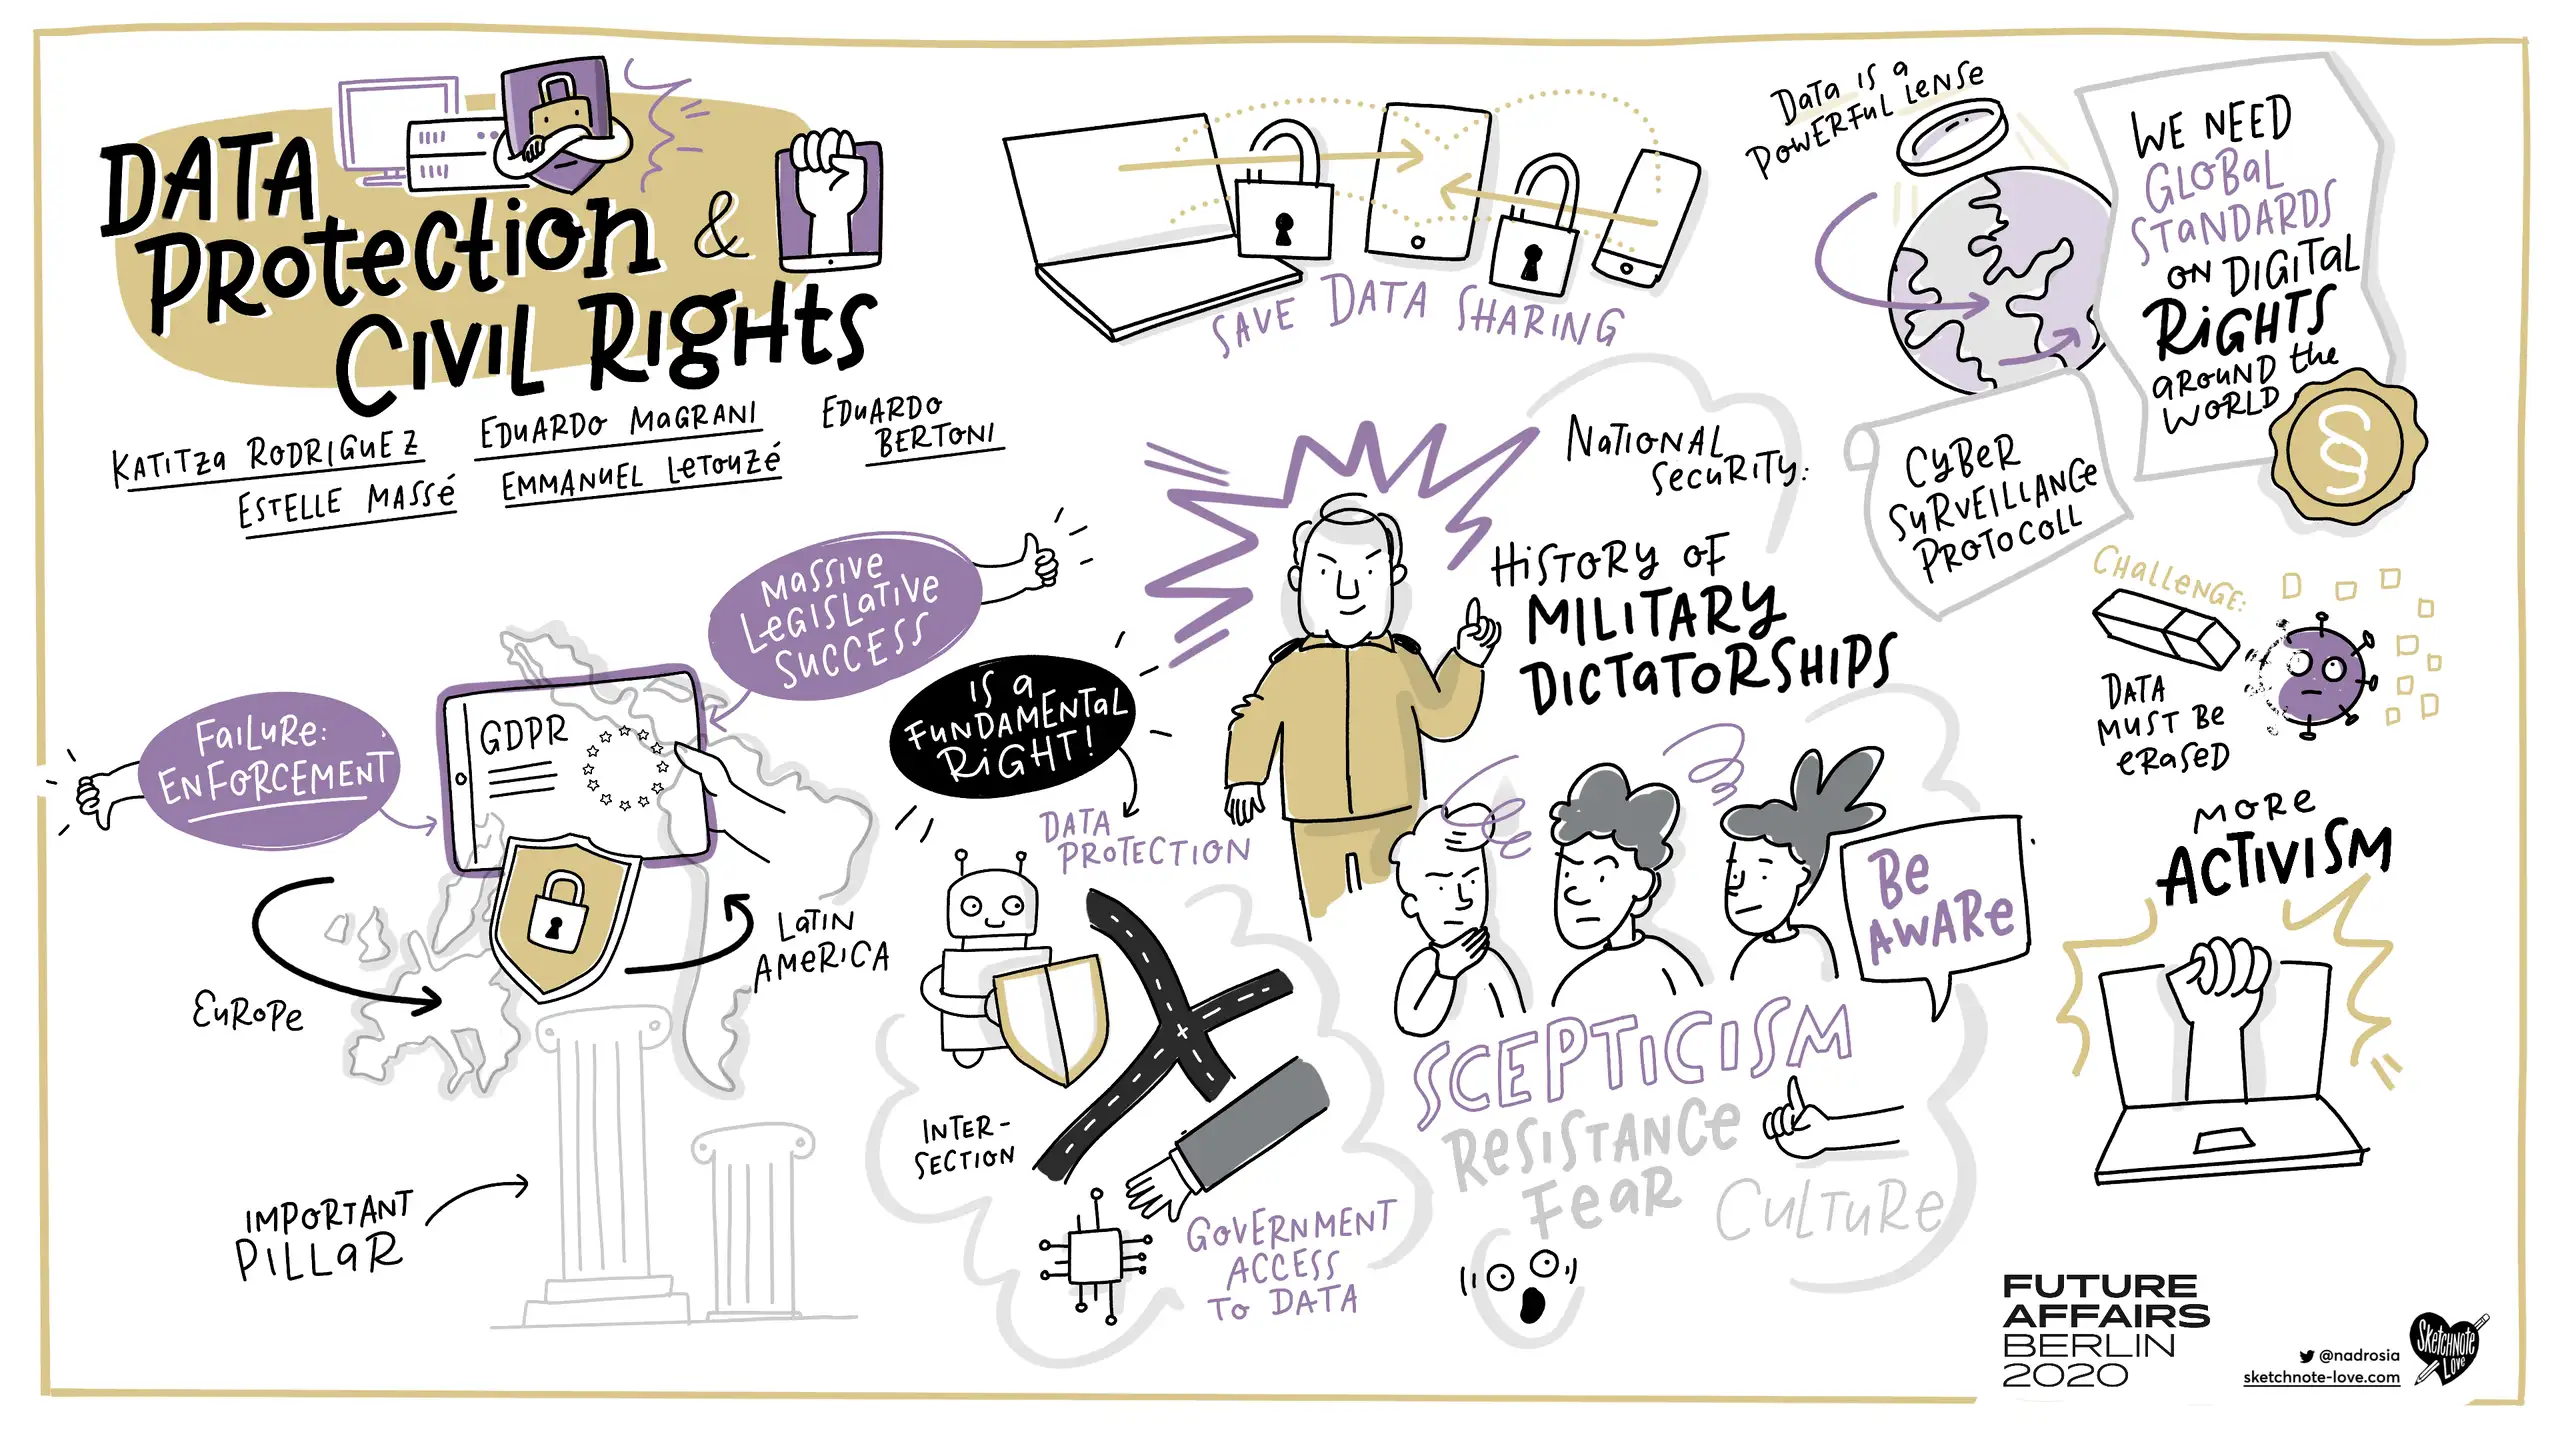 DATA
PROTECTION &
CIVIL RIGHTS
KATITZA RODRIGUEZ
EDUARDO MAGRANI
EDUARDO
BERTONI
ESTELLE MASSÉ
EMMANUEL LETOUZÉ
SAVE DATA SHARING
DATA IS A
POWERFUL LENSE
WE NEED
GLOBAL
STANDARDS
ON DIGITAL
RIGHTS
AROUND the
WORLD
§
CYBER
SURVEILLANCE
PROTOCOLL
NATIONAL
SECURITY:
HISTORY OF
MILITARY
DICTATORSHIPS
MASSIVE
LEGISLATIVE
SUCCESS
FAILURE:
ENFORCEMENT
GDPR
EUROPE
LATIN
AMERICA
IMPORTANT
PILLAR
IS A
FUNDAMENTAL
RIGHT!
DATA
PROTECTION
INTER-
SECTION
GOVERNMENT
ACCESS
TO DATA
BE
AWARE
SCEPTICISM
RESISTANCE
FEAR
CULTURE
CHALLENGE:
DATA
MUST BE
ERASED
MORE
ACTIVISM
FUTURE
AFFAIRS
BERLIN
2020
@nadrosia
sketchnote-love.com
SKETCHNOTE
LOVE